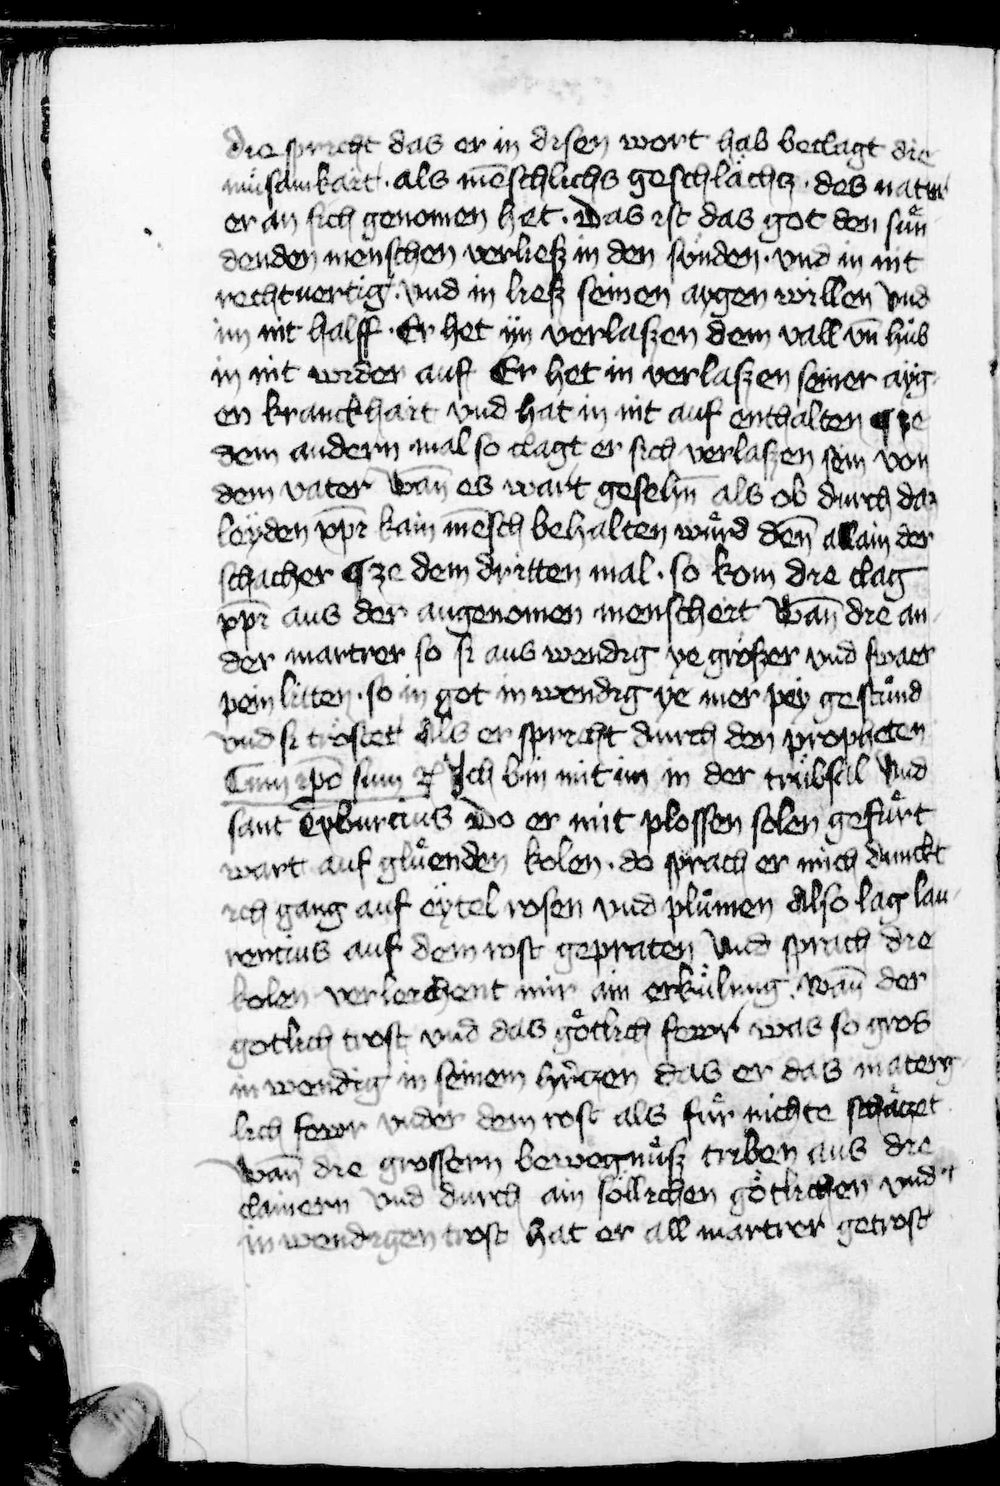 die spricht das er in disen wort hab beclagt die
müsamkait · als mēschlichs geschlächtz · des natur
er an sich genomen het · Das ist das got den sün
denden menschen verliesz in den sünden · vnd in nit
rechtuertig · vnd in liesz seinen aygen willen vnd
im nit halff · Er het yn verlaszen dem vall vn̄ hůb
in nit wider auf Er het in verlaszen seiner ayg
en kranckhait vnd hat in nit auf enthalten ¶ ze
dem andern mal so clagt er sich verlaszen sein von
dem vater Wan̄ es wart gesehn̄ als ob durch daz
leyden xp̄i kain mēsch behalten wůrd den̄ allain der
schacher ¶ ze dem dritten mal · so kom die clag
xp̄i aus der angenomen menscheit Wan̄ die an
der martrer so si aus wendig ye groszer vnd swaer
pein litten · so in got in wendig ye mer pey gestůnd
vnd si tröstet Als er spricht durch den propheten
Cum ip̄o sum ꝛc̄ Ich bin mit im in der trübsal vnd
sant Tyburcius Do er mit plossen solen gefůrt
wart auf glůenden kolen · do sprach er mich dunckt
ich gang auf eytel rosen vnd plůmen Also lag lau
rencius auf dem rost gepraten vnd sprach die
kolen verleichent mir ain erkülung · Wan̄ der
gotlich trost vnd das götlich fewr was so gros
in wendig in seinem hertzen das er das materg
lich fewr vnder dem rost als für nichte schäczet
Wan̄ die grossern bewegnüsz triben aus die
clainern vnd durch ain söllichen götlichen vnd
in wendigen trost hat er all martrer getrost